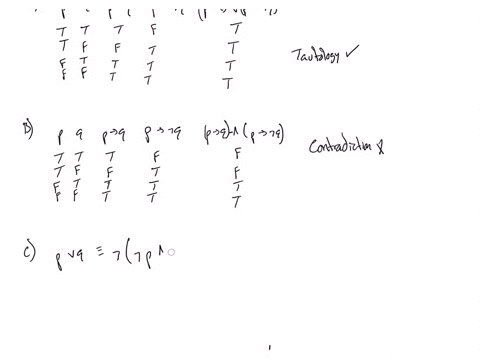 T T T F T
T F F T T
F T T T T
F F T T T
Tautology ✓
B) p q p→q p→¬q (p→q)∧(p→¬q)
T T T F F
T F F T F
F T T T T
F F T T T
Contradiction ✗
C) p∨q ≡ ¬(¬p∧